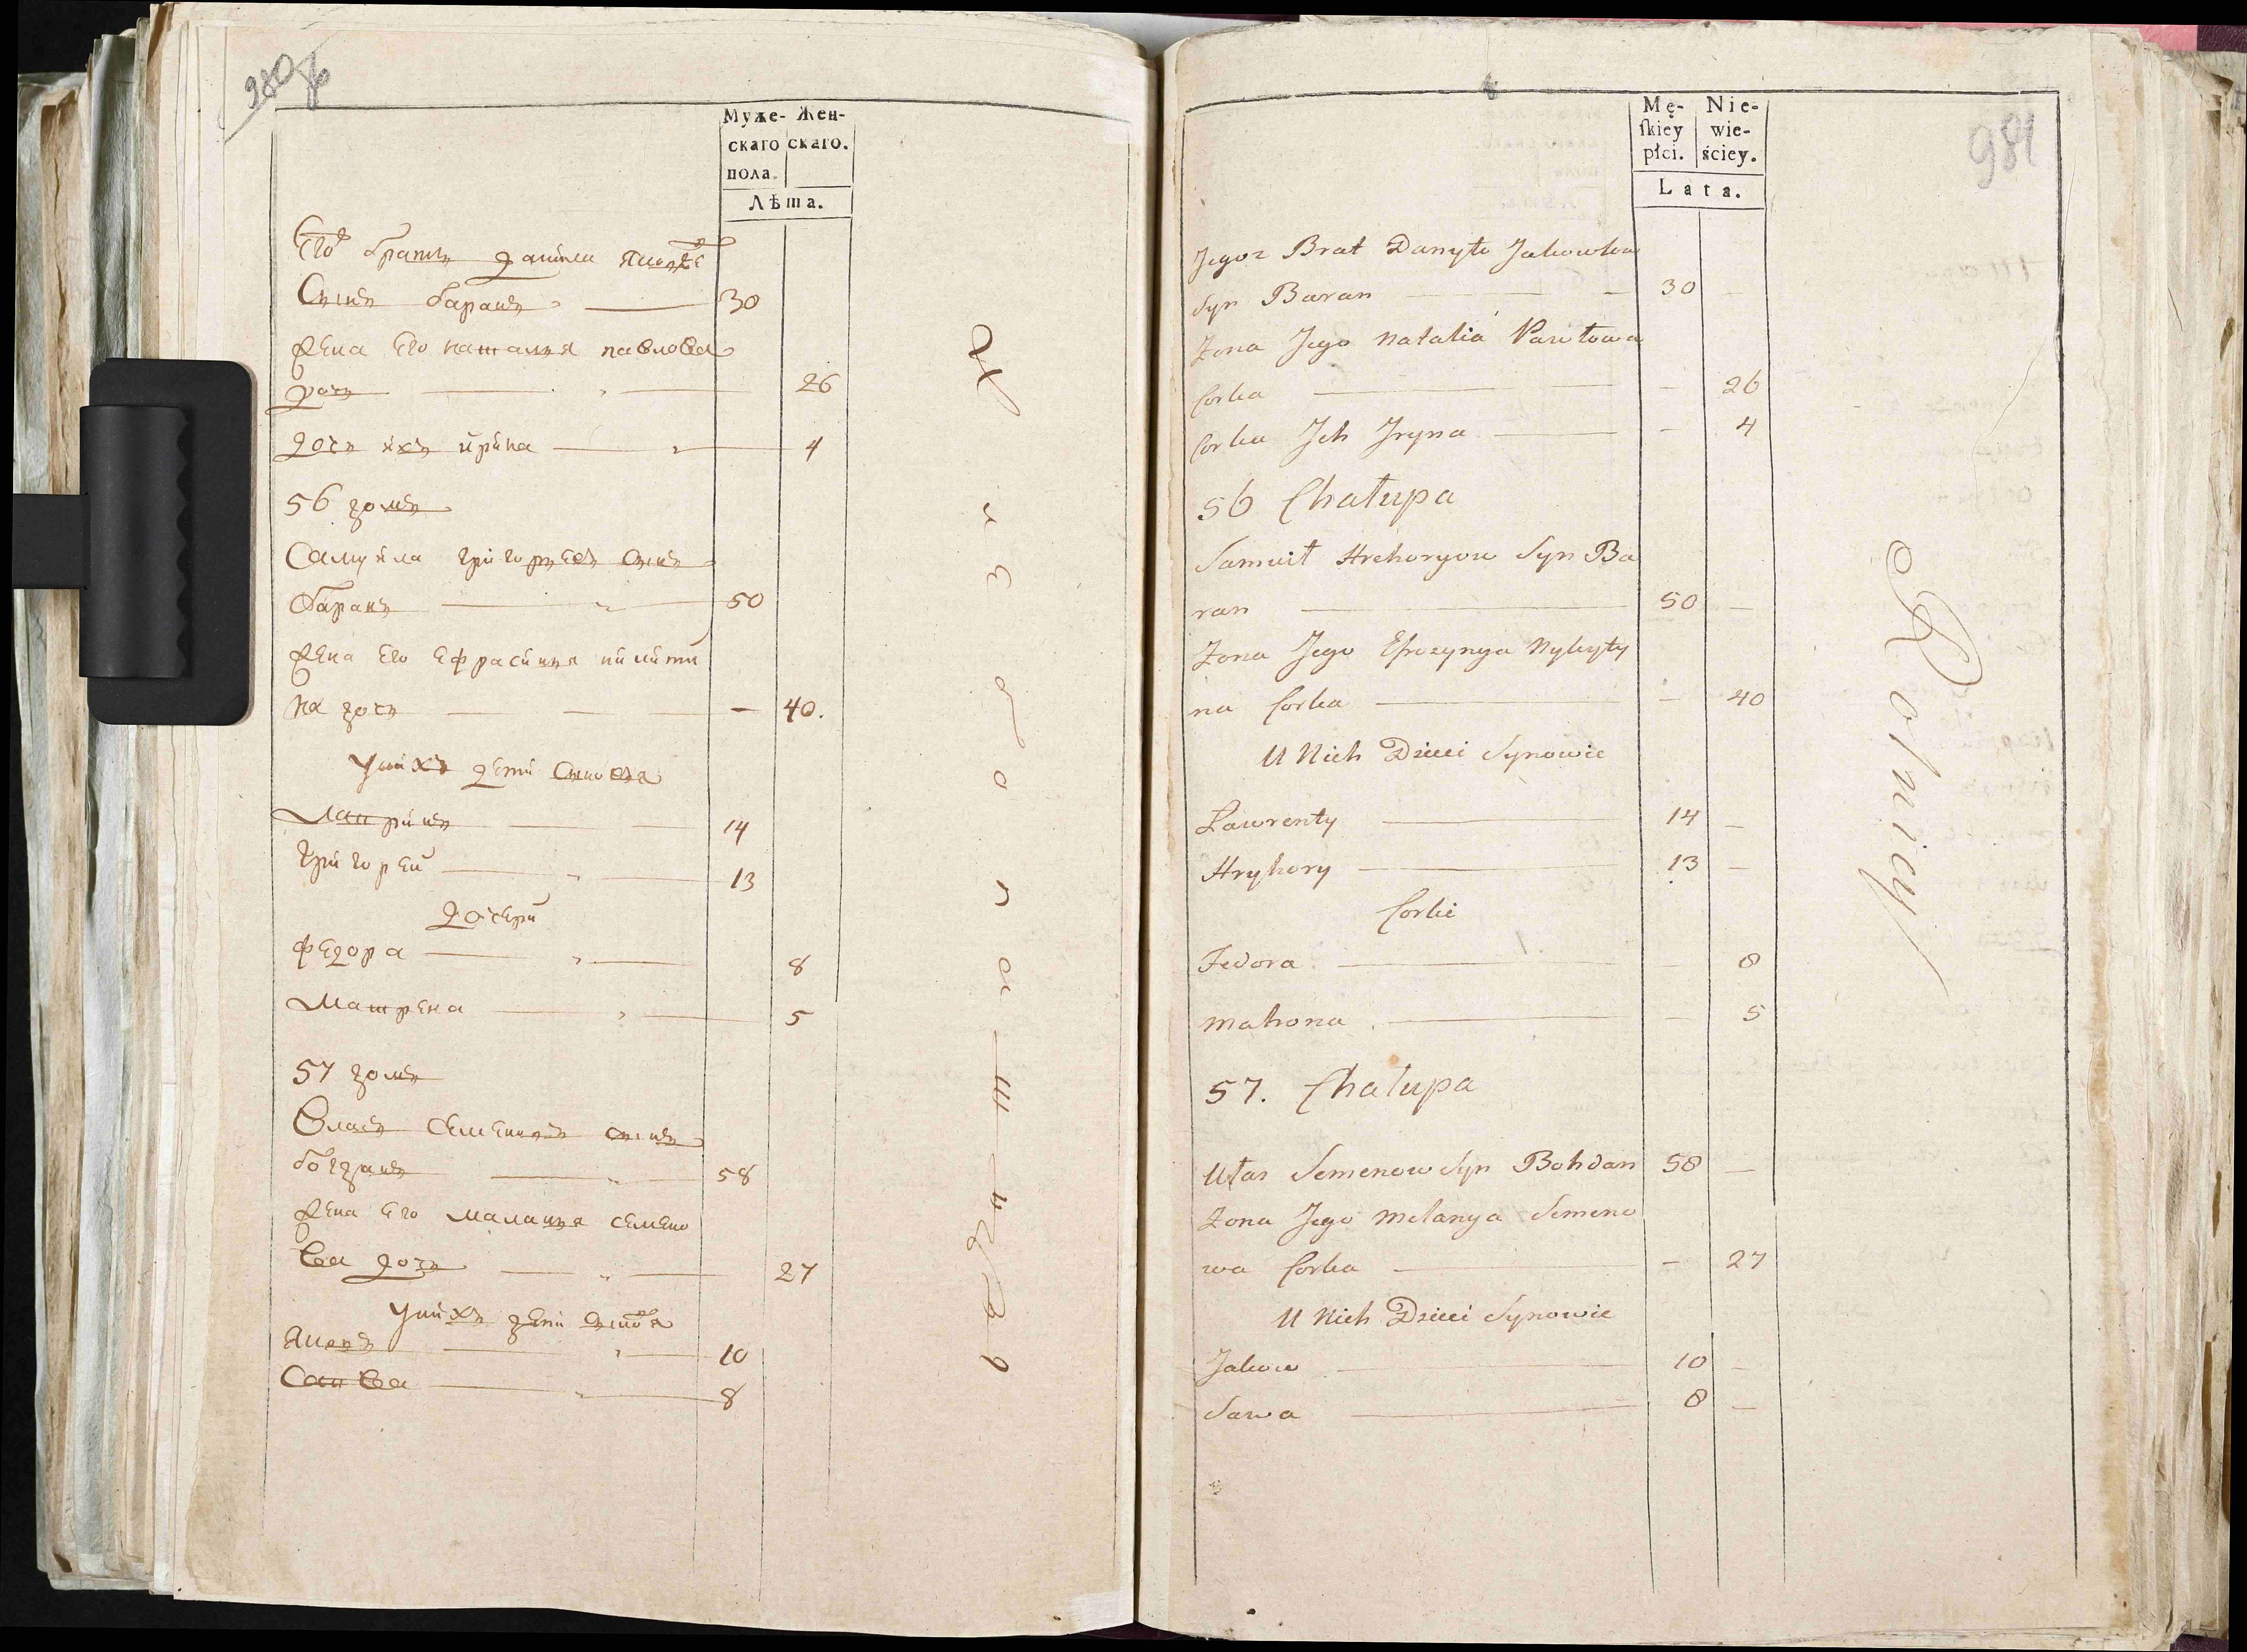 980 об
Муже- Жен-
скаго скаго.
пола.
Лѣта.
Его братъ данила яковле
Сынъ баранъ 30
жена Его наталия павлова
дочь 26
дочь ихъ ирина 4
56 домъ
Самуйла григорьевъ сынъ
баранъ 50
жена Его Ефрасиния никити
на дочь 40.
у нихъ дети сыновья
Лавринъ 14
григорей 13
дочери
федора 8
матрена 5
57 домъ
Власъ семеновъ сынъ
богданъ 58
жена Его малания семено
ва дочь 27
у нихъ дети сыновья
яковъ 10
Савва 8
981
Mę- Nie-
skiey wie-
płci. ściey.
Lata.
Jegoz Brat Danyło Jakowlew
Syn Baran 30
Zona Jego Natalia Pawłowa
Corka 26
Corka Jch Jryna 4
56 Chałupa
Samuił Hrehoryow Syn Ba
ran 50
Zona Jego Efrozynya Nykyty
na Corka 40
U Nich Dzieci Synowie
Ławrenty 14
Hryhory 13
Corki
Fedora 8
Matrona 5
57. Chałupa
Ułas Semenow Syn Bohdan 58
Zona Jego Melanya Semeno
wa Corka 27
U Nich Dzieci Synowie
Jakow 10
Sawa 8
Rolnicy